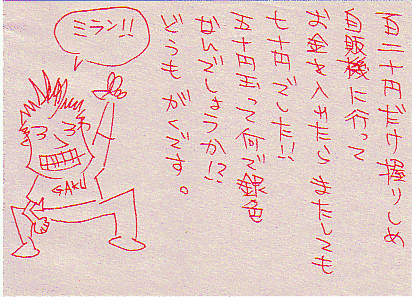 百二十円だけ握りしめ
自販機に行って
お金を入れたらまたしても
七十円でした!!
五十円玉って何で銀色
なんでしょうか!?
どうもがくです。
ミラン!!
GAKU